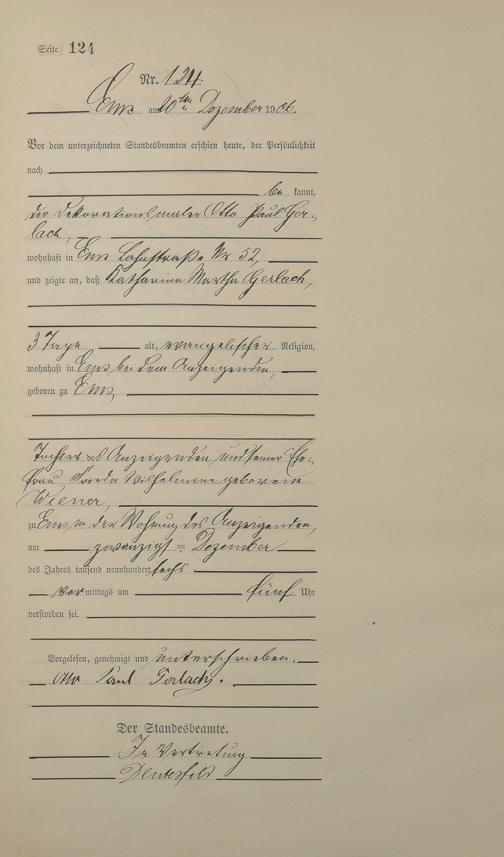 Seite 124
Nr. 124.
Ems am 20ten Dezember 1906.
Vor dem unterzeichneten Standesbeamten erschien heute, der Persönlichkeit
nach
be kannt,
der Dekorationsmaler Otto Paul Ger-
lach,
wohnhaft in Ems Lahnstraße Nr 52,
und zeigte an, daß Katharina Martha Gerlach,
3 Tage alt, evangelischer Religion,
wohnhaft in Ems, bei dem Anzeigenden,
geboren zu Ems,
Tochter des Anzeigenden und seiner Ehe-
frau Frieda Wilhelmine geborene
Wiener,
zu Ems, in der Wohnung des Anzeigenden,
am zwanzigsten Dezember
des Jahres tausend neunhundert sechs
vor mittags um fünf Uhr
verstorben sei.
Vorgelesen, genehmigt und unterschrieben.
Otto Paul Gerlach.
Der Standesbeamte.
In Vertretung